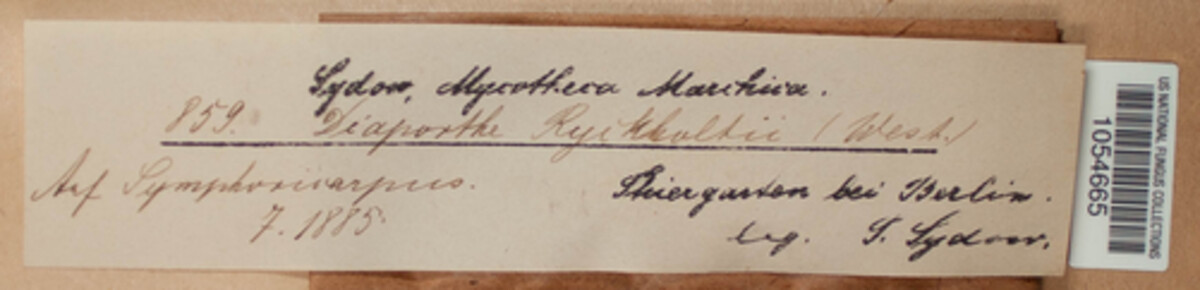 Sydow, Mycotheca Marchica.
859. Diaporthe Ryckholtii (West.)
Auf Symphoricarpus.
7. 1885.
Thiergarten bei Berlin.
leg. P. Sydow.
US NATIONAL FUNGUS COLLECTIONS
1054665